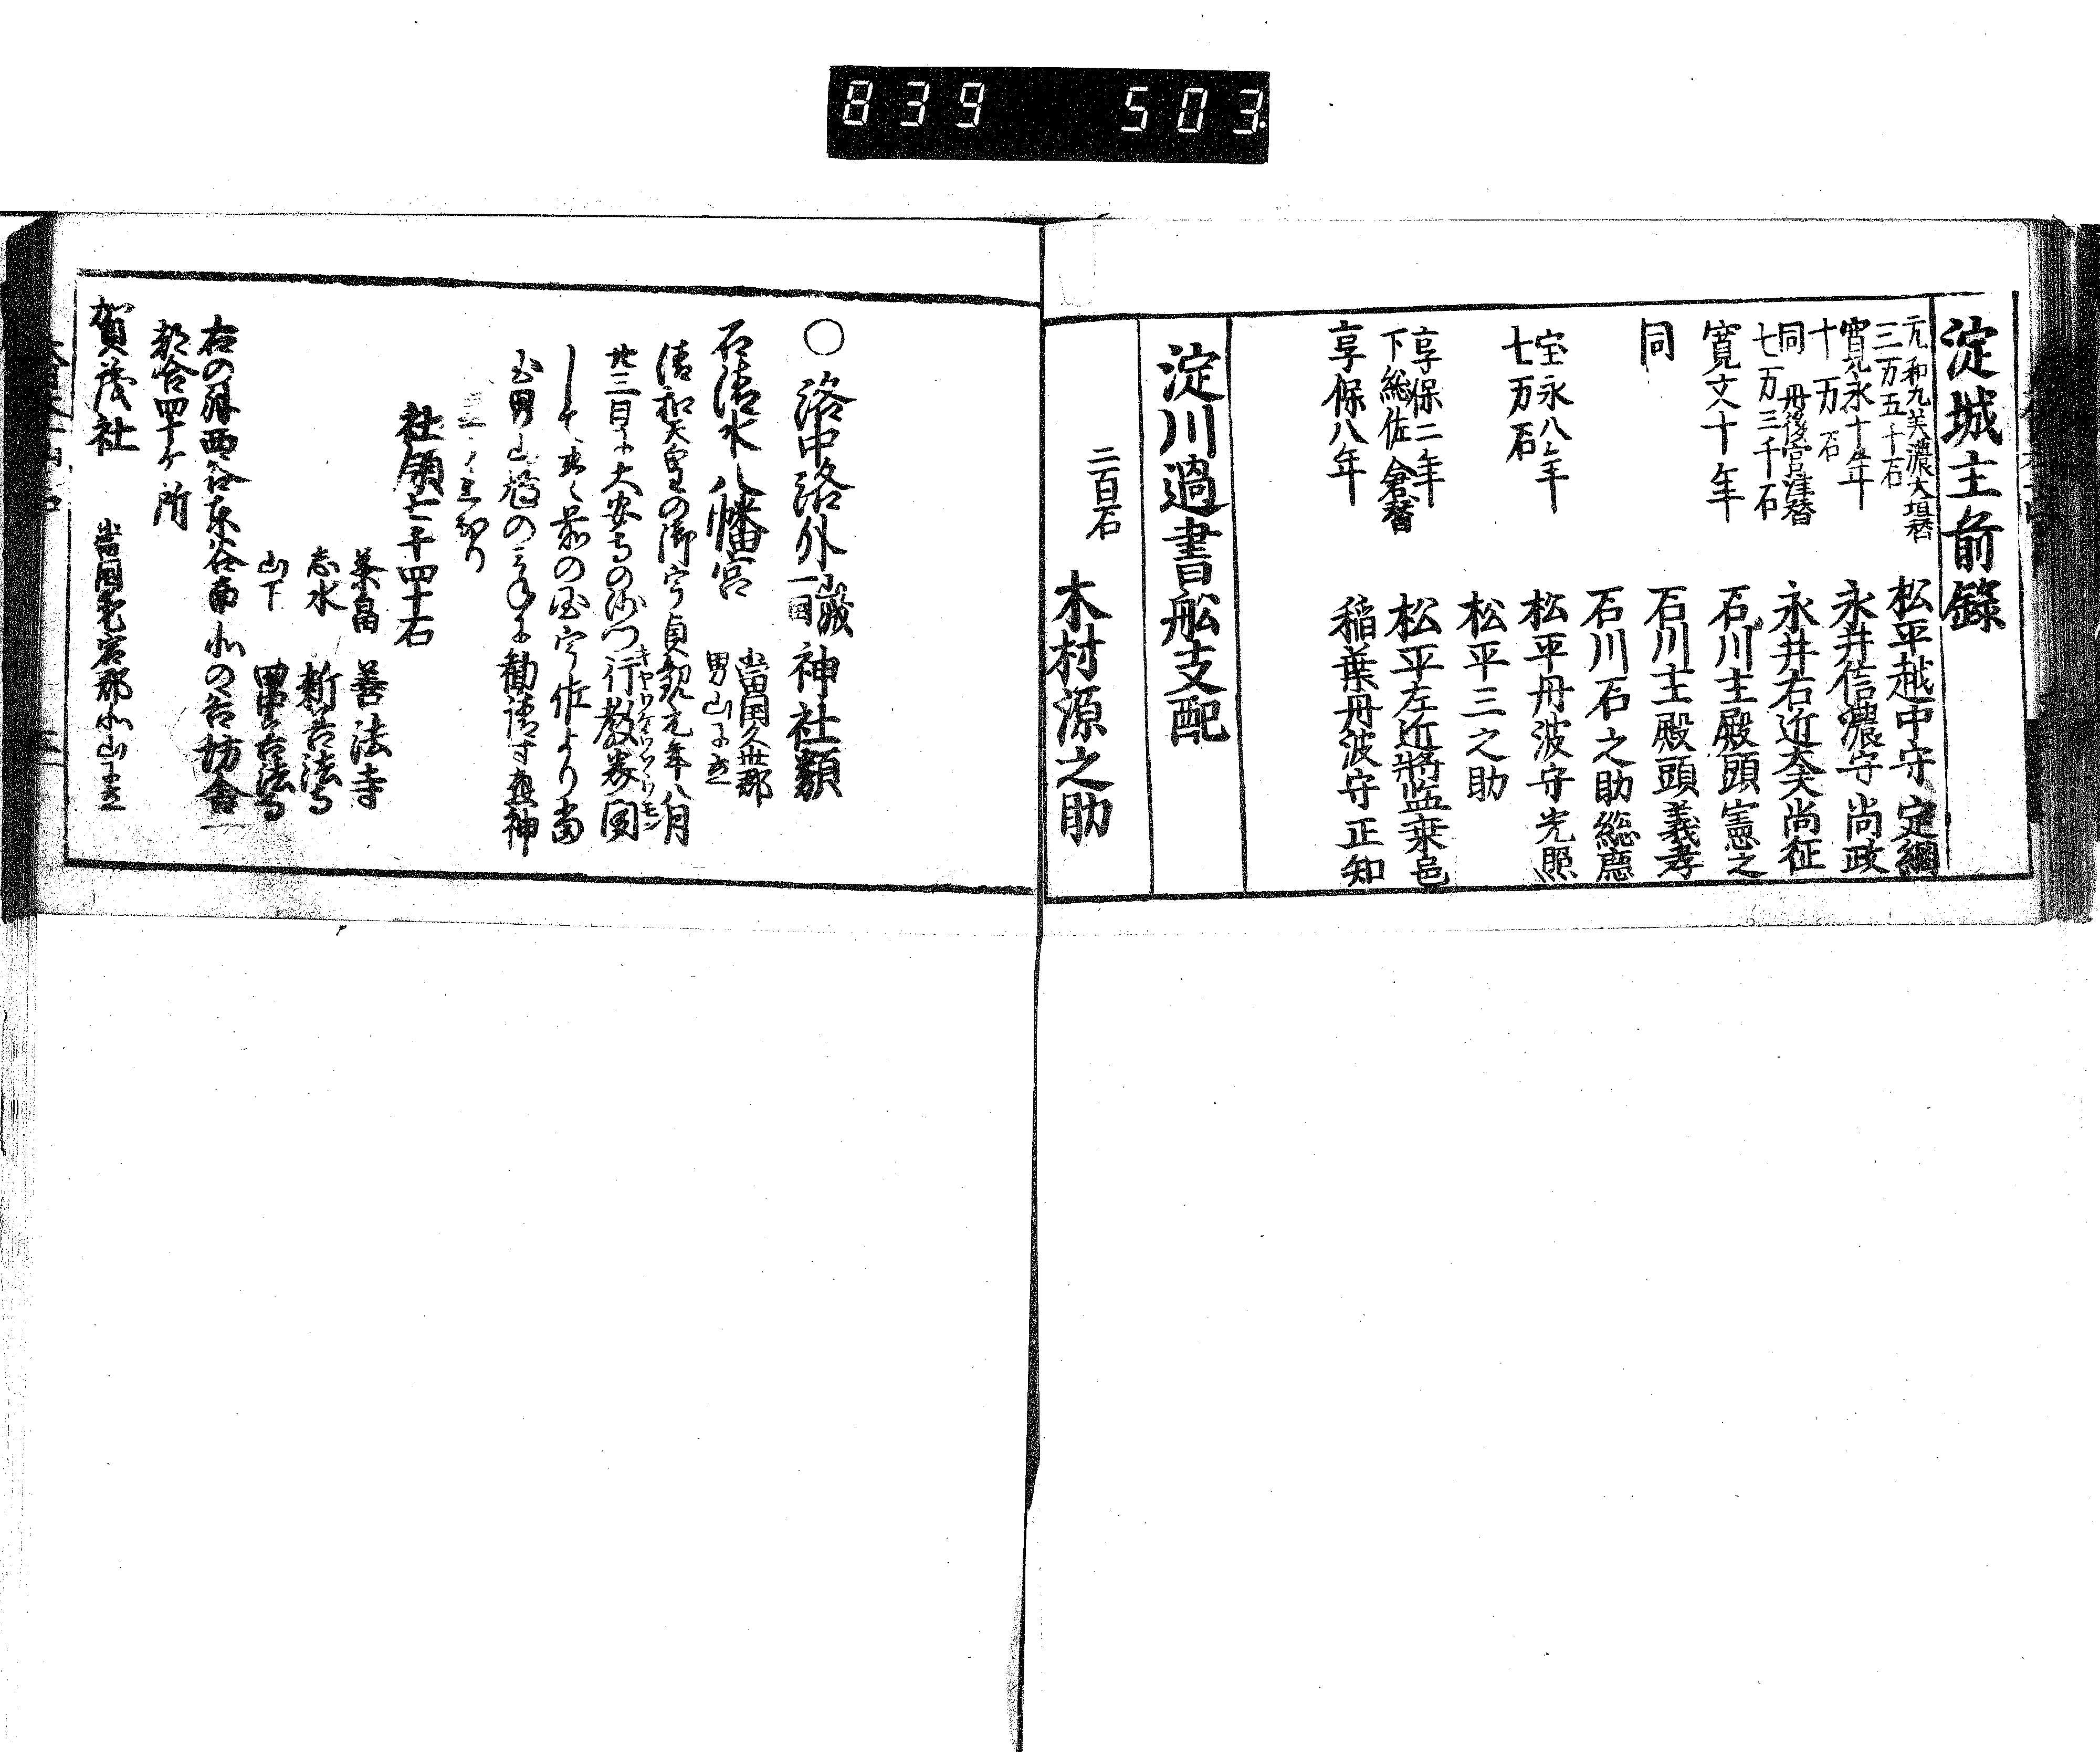 839 503
淀城主前録
元和九美濃大垣替
三万五千石
松平越中守定綱
寛永十年
十万石
永井信濃守尚政
同 丹後宮津替
七万三千石
永井右近大夫尚征
寛文十年
石川主殿頭憲之
同
石川主殿頭義孝
石川石之助総慶
宝永八年
七万石
松平丹波守光熙
松平三之助
享保二年
下総佐倉替
松平左近將監乗邑
享保八年
稲葉丹波守正知
淀川過書舩支配
二百石
木村源之助
○洛中洛外山城一国神社類
石清水八幡宮
當国久世郡
男山に有
清和天皇の御宇貞観元年八月
廿三日に大安寺の沙門行教
社領七千四十石
善法寺
志水 新善法寺
山下 田中
右の外西谷東谷南北の谷坊舎
都合四十ヶ所
賀茂社
當国愛宕郡北山